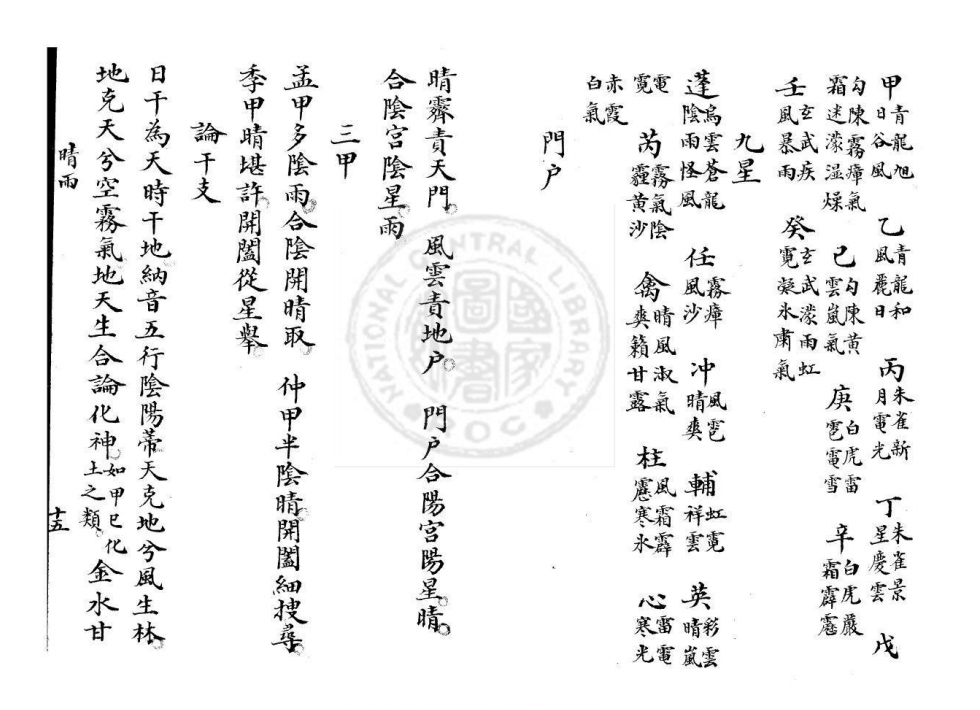 甲青龍旭日谷風　乙青龍和風麗日　丙朱雀新月電光　丁朱雀景星慶雲　戊
勾陳霧瘴氣霜迷濛湿燥　己勾陳黃雲嵐氣　庚白虎雷雹電雪　辛白虎嚴霜霹靂
壬玄武疾風暴雨　癸玄武濛雨虹霓凝氷肅氣
九星
蓬烏雲蒼龍陰雨怪風　任霧瘴風沙　冲風雹晴爽　輔虹霓祥雲　英彩雲晴嵐
電霓　芮霧氣陰霾黃沙　禽晴風淑氣爽籟甘露　柱風霜霹靂寒氷　心雷電寒光
赤霞白氣
門戶
晴霽責天門　風雲責地戶　門戶合陽宮陽星晴
合陰宮陰星雨
三甲
孟甲多陰雨合陰開晴取　仲甲半陰晴開闔細搜尋
季甲晴堪許開闔從星舉
論干支
日干為天時干地納音五行陰陽蒂天克地兮風生林
地克天兮空霧氣地天生合論化神如甲己化土之類金水甘
晴雨
十五
NATIONAL CENTRAL LIBRARY
ROC
國家圖書館